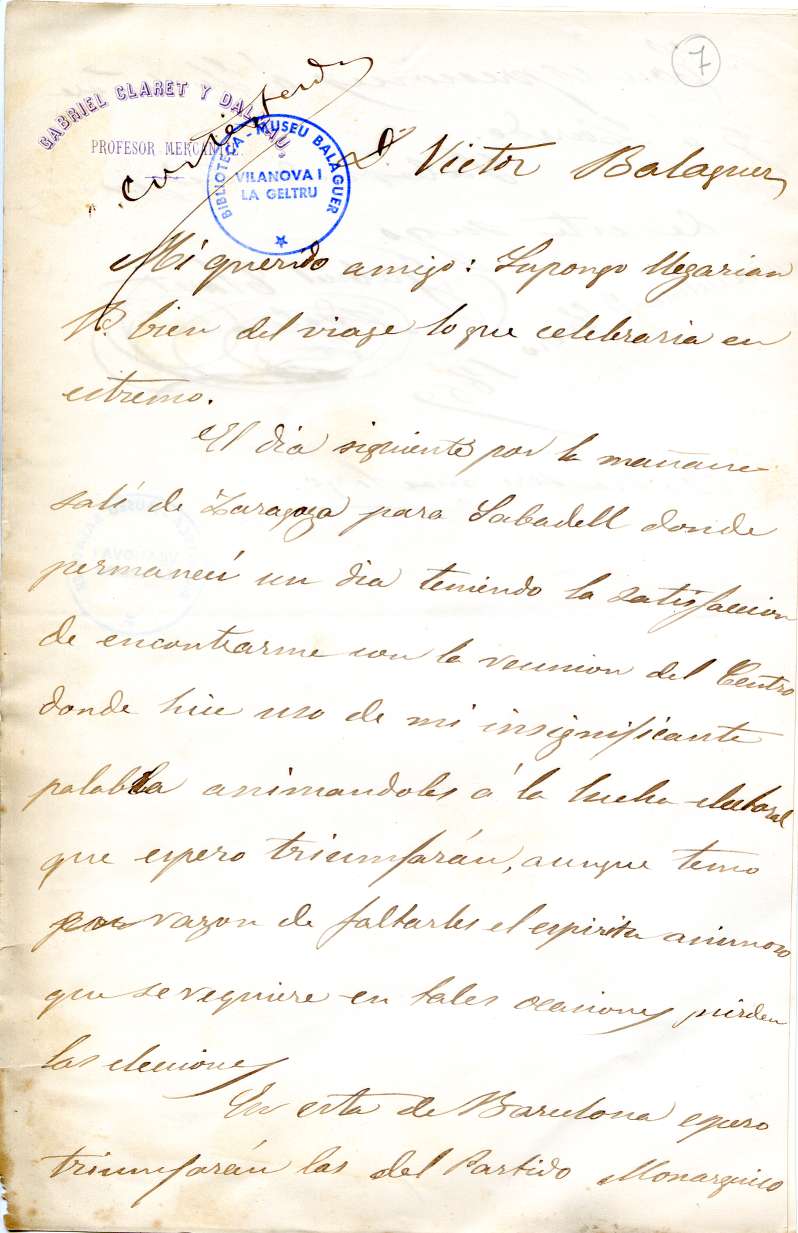 7
GABRIEL CLARET Y DALMAU,
PROFESOR MERCANTIL
BIBLIOTECA - MUSEU BALAGUER
VILANOVA I
LA GELTRU
D. Victor Balaguer
Mi querido amigo: Supongo llegarian
V. bien del viage lo que celebraria en
estremo.
El dia siguiente por la mañana
salí de Zaragoza para Sabadell donde
permanecí un dia teniendo la satisfaccion
de encontrarme con la reunion del Centro
donde hice uso de mi insignificante
palabra animandoles á la lucha electoral
que espero triunfarán, aunque temo
por razon de faltarles el espiritu animoso
que se requiere en tales ocasiones pierden
las elecciones
En esta de Barcelona espero
triunfarán las del Partido Monarquico